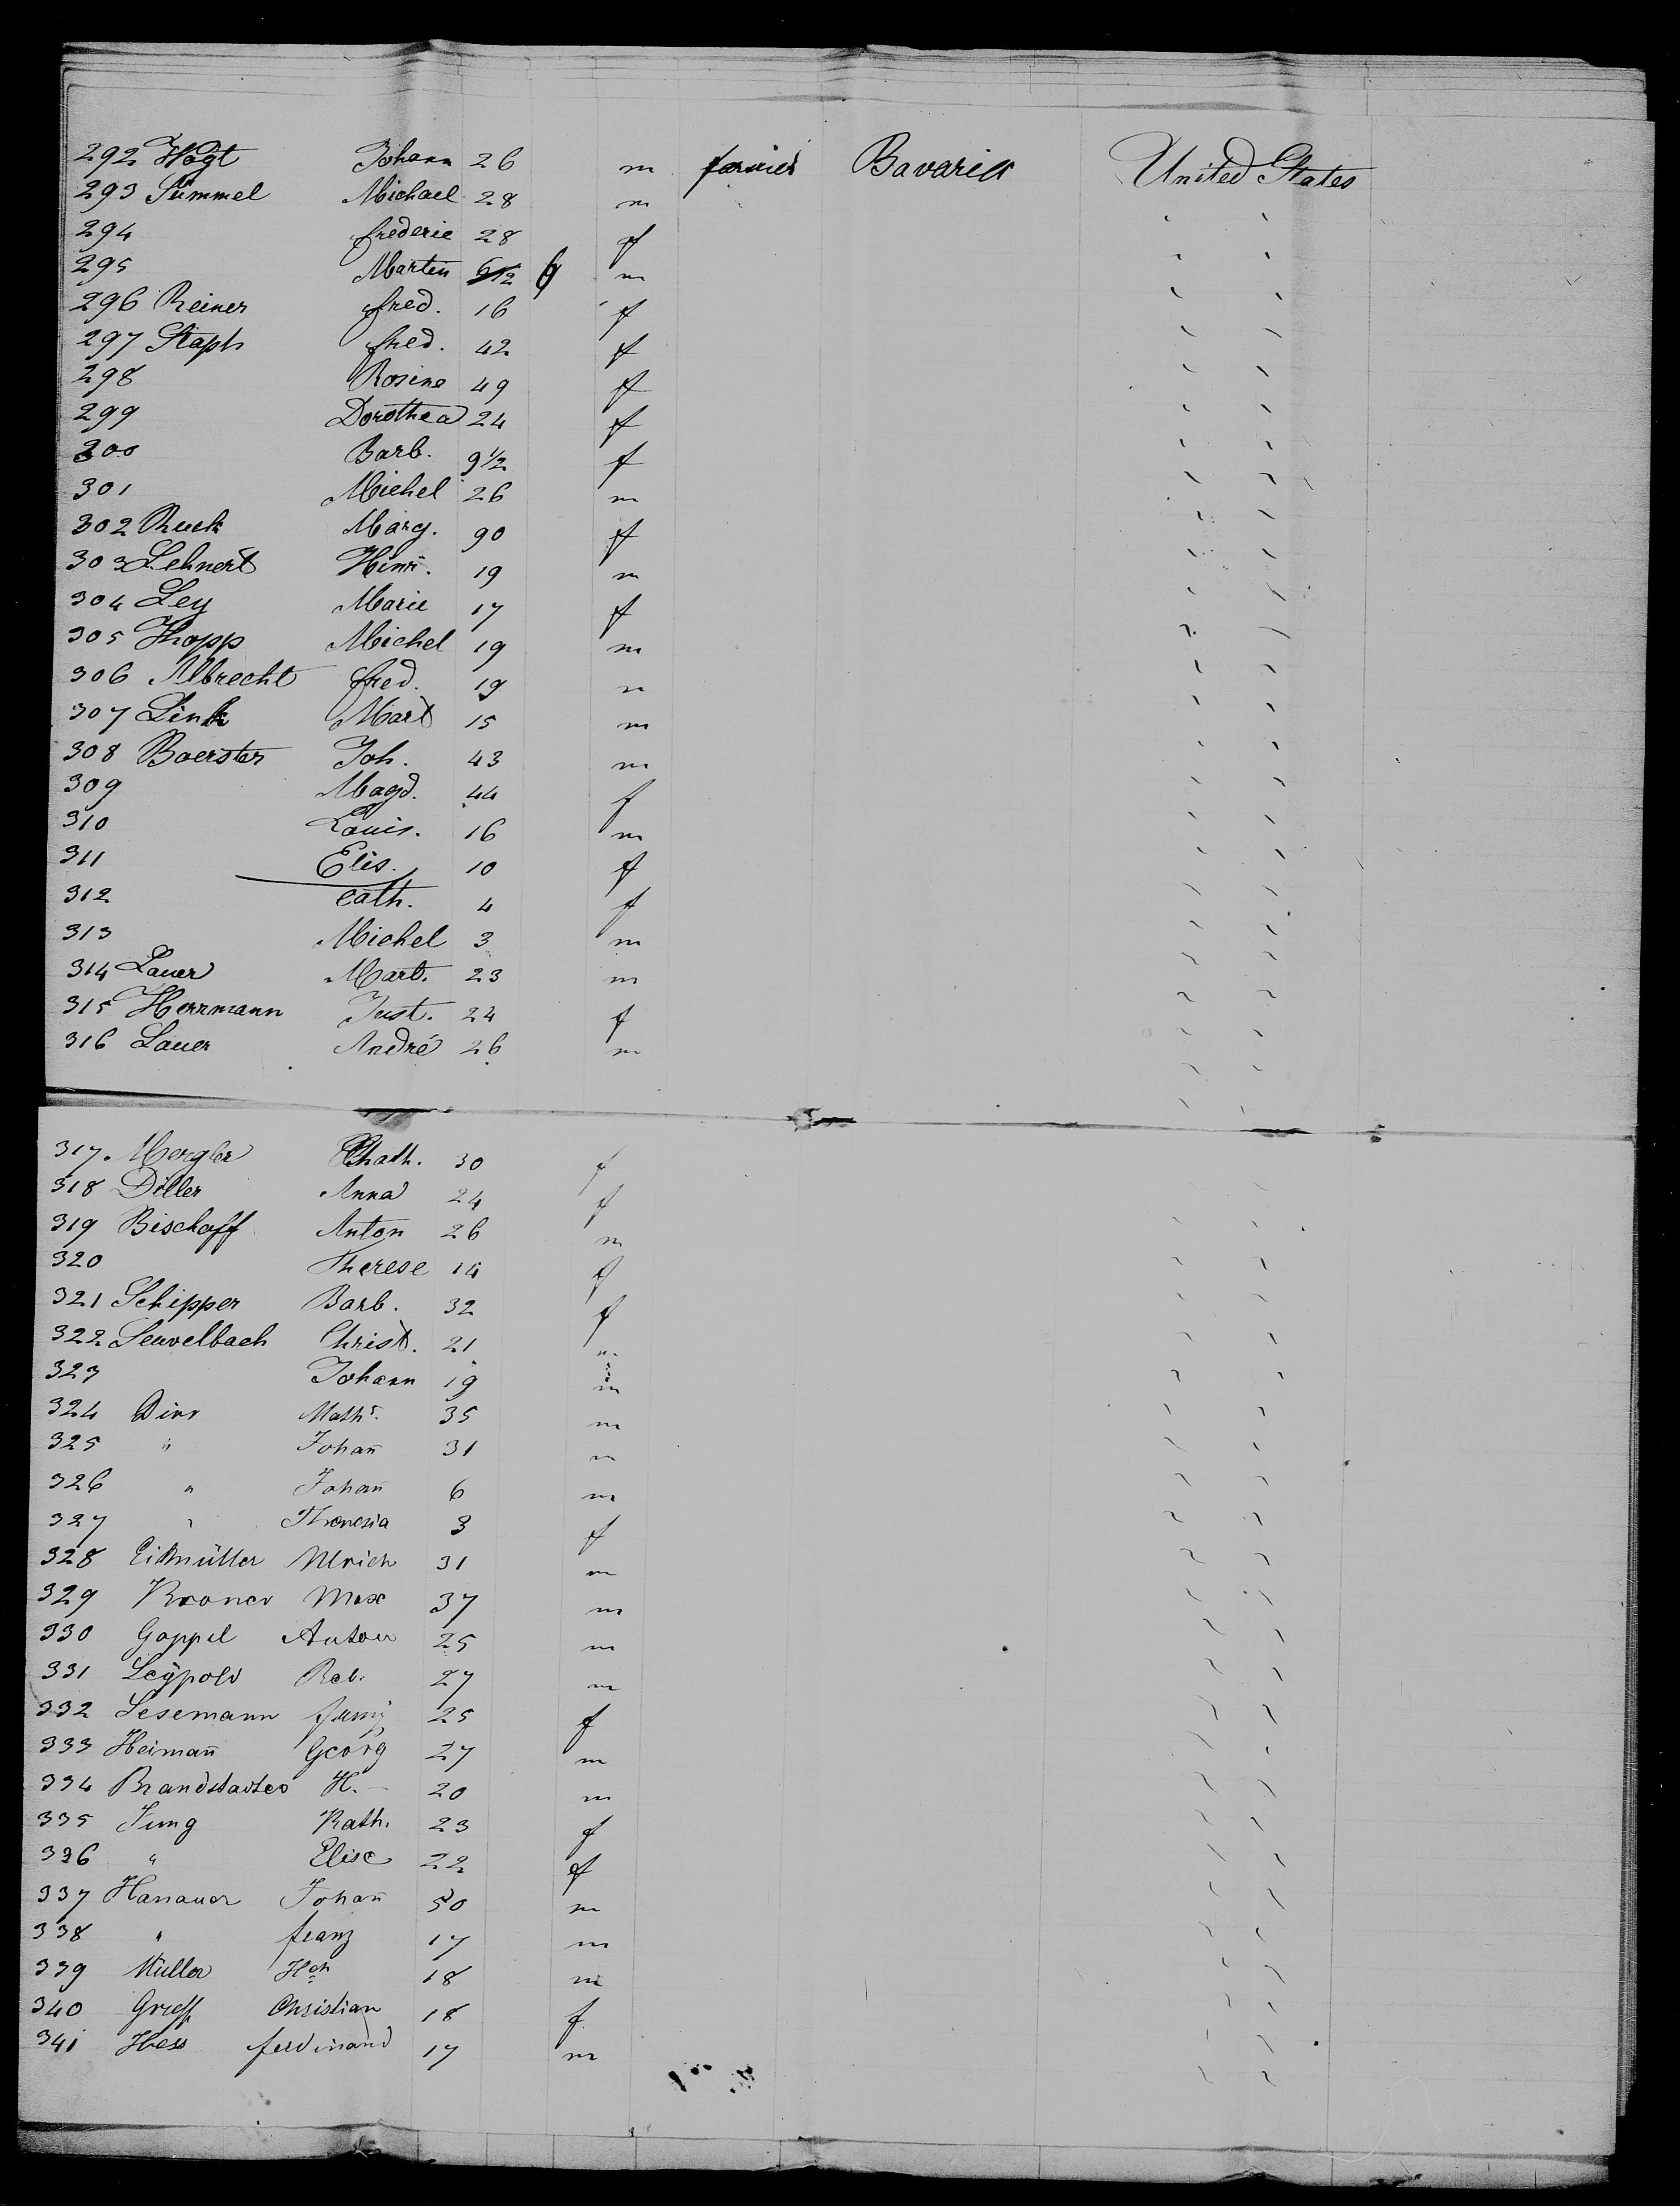 292 Vogt Johann 26 m farmer Bavaria United States
293 Simmel Michael 28 m " "
294 frederie 28 f " "
295 Martin 6/12 6 m " "
296 Reiner fred. 16 f " "
297 Staph fred. 42 f " "
298 Rosine 49 f " "
299 Dorothea 24 f " "
300 Barb. 9 1/2 f " "
301 Michel 26 m " "
302 Ruck Marg. 90 f " "
303 Lehnert 19 m " "
304 Ley Marie 17 f " "
305 Hopp Michel 19 m " "
306 Albrecht fred. 19 m " "
307 Link Mart 15 m " "
308 Boerster Joh. 43 m " "
309 Magd. 44 f " "
310 Louis. 16 m " "
311 Elis. 10 f " "
312 Cath. 4 f " "
313 Michel 3 m " "
314 Lauer Mart. 23 m " "
315 Herrmann Just. 24 f " "
316 Lauer André 26 m " "
317. Mergler Chath. 30 f
318 Diller Anna 24 f " "
319 Bischoff Anton 26 m " "
320 Therese 14 f " "
321 Schipper Barb. 32 f " "
322 Seuvelbach Christ. 21 m " "
323 Johann 19 m " "
324 Dirr Maths. 35 m " "
325 " Johañ 31 m " "
326 " Johañ 6 m " "
327 " Theresia 3 f " "
328 Ulrich 31 m " "
329 Kroner Max 37 m " "
330 Goppel Anton 25 m " "
331 Leÿpold Reb. 27 m " "
332 Sesemann fanny 25 f " "
333 Heimañ Georg 27 m " "
334 H. 20 m " "
335 Jung Kath. 23 f " "
336 " Elise 22 f " "
337 Hanauer Johañ 50 m " "
338 " franz 17 m " "
339 Müller Hch 18 m " "
340 Greff Christian 18 f " "
341 Hess ferdinand 17 m " "